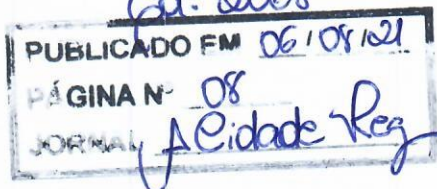 PUBLICADO EM 06/08/21
PÁGINA Nº 08
JORNAL A Cidade Reg